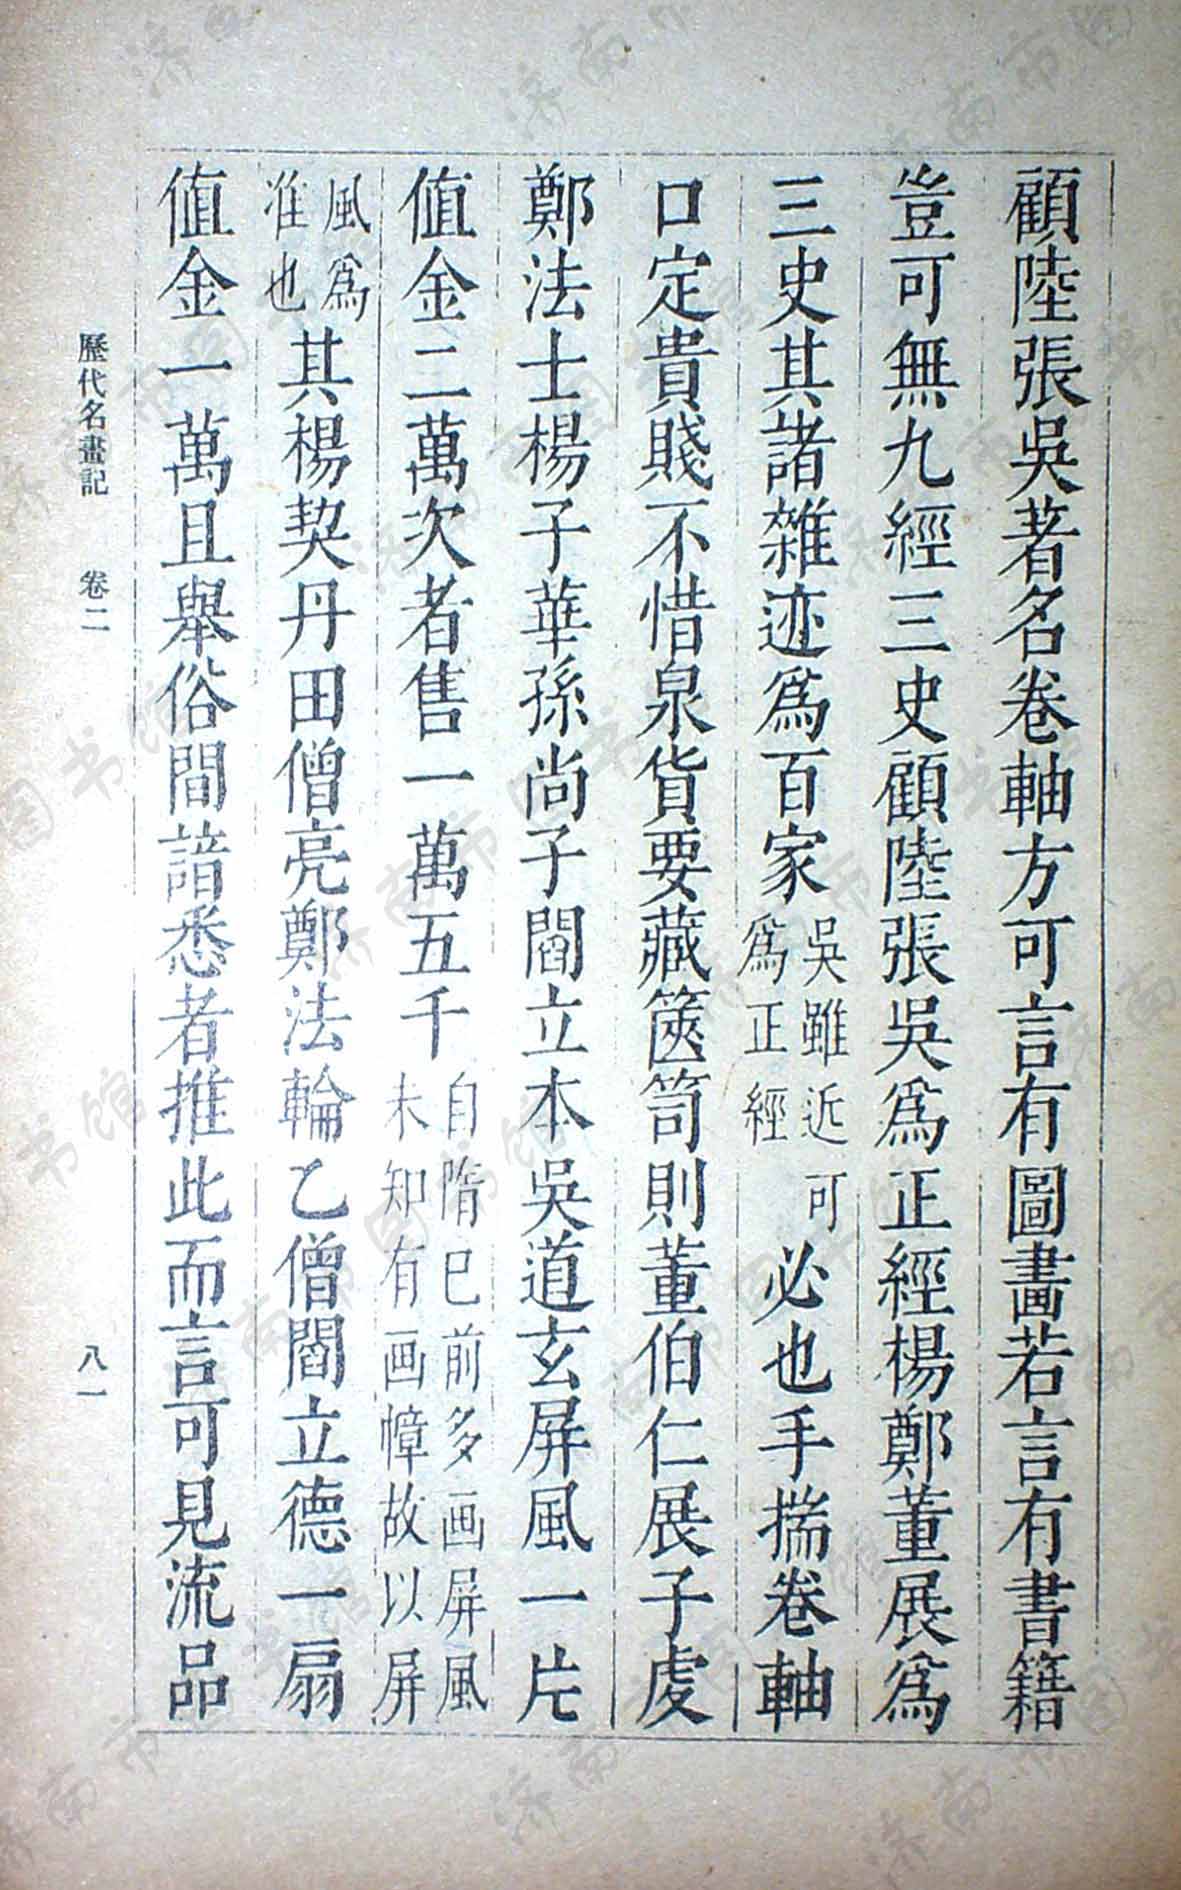 顧陸張吳著名卷軸方可言有圖畫若言有書籍
豈可無九經三史顧陸張吳爲正經楊鄭董展爲
三史其諸雜迹爲百家吳雖近可爲正經必也手揣卷軸
口定貴賤不惜泉貨要藏篋笥則董伯仁展子虔
鄭法士楊子華孫尚子閻立本吳道玄屏風一片
值金二萬次者售一萬五千自隋已前多画屏風未知有画幛故以屏
風爲准也其楊契丹田僧亮鄭法輪乙僧閻立德一扇
值金一萬且舉俗間諳悉者推此而言可見流品
歷代名畫記 卷二 八一
济南市图书馆